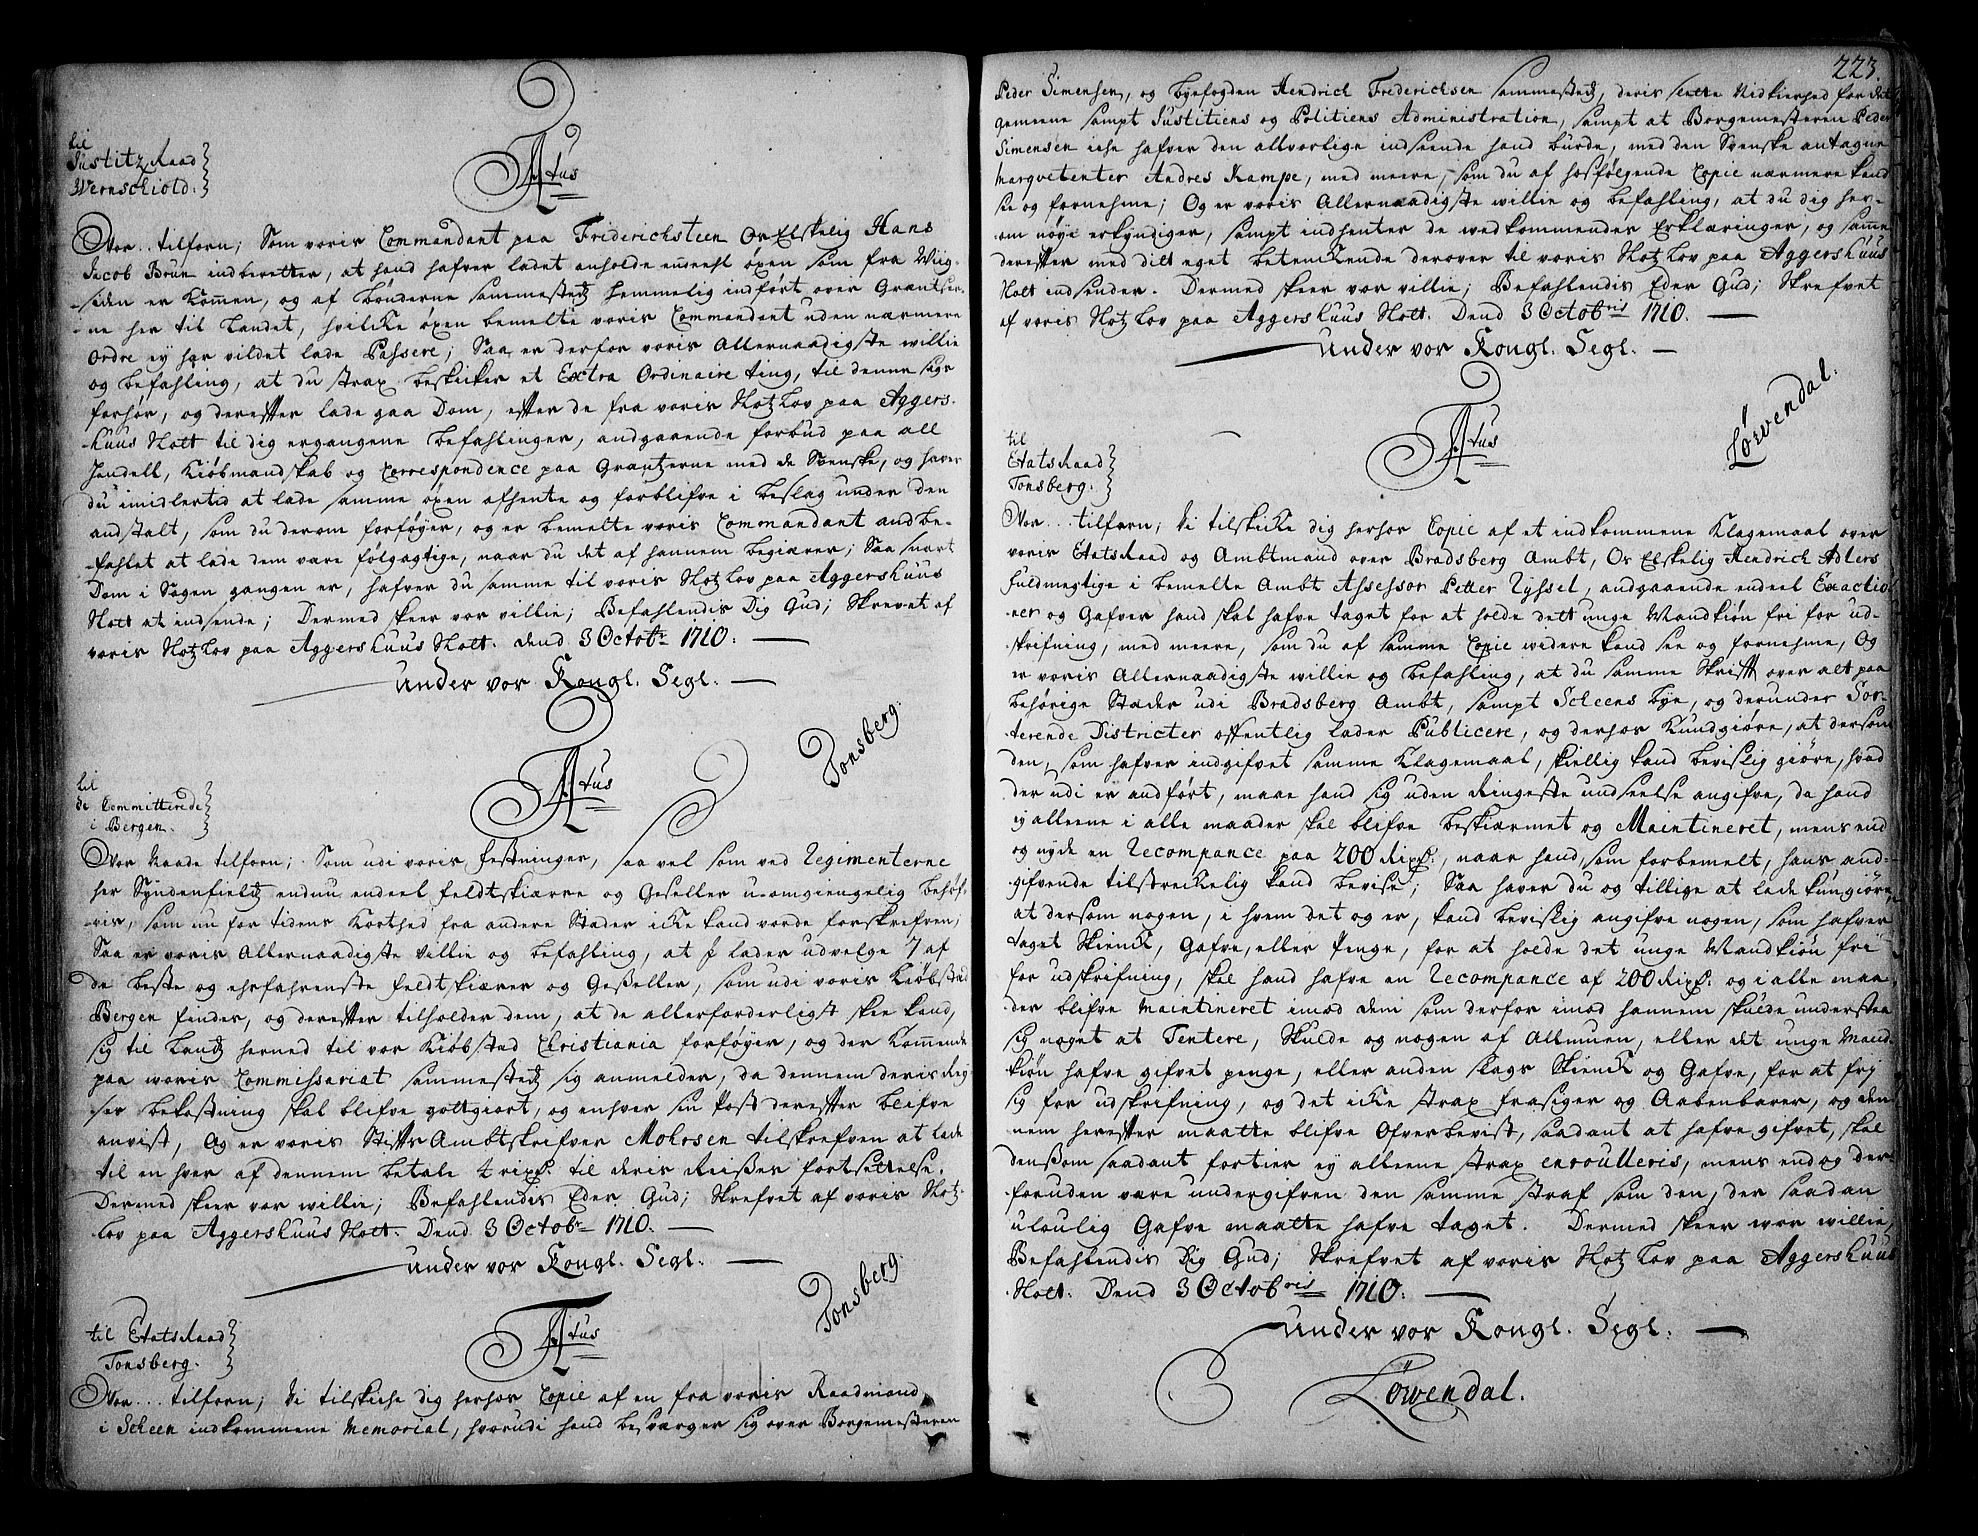 til
Justitz Raad
Wernschiold.
Atus
Vor... tilforn; Som voris Commandant paa Friderichsteen Os Elskelig Hans
Jacob Brun indberetter, at hand hafver ladet anholde eneeht öxen som fra Wiig-
siden er kommen, og af bönderne sammestedz hemmelig indfört over Grantzer-
ne her til Landet, hvilcke öxen bemelte voris Commandant uden nærmere
Ordre ey har vildet lade Passere; Saa er derfor voris Allernaadigste willie
og befahling, at du strax beskicker et Extra Ordinaire ting, til denne sags
forhör, og derefter lade gaa Dom, efter de fra voris Slotz Lov paa Aggers-
huus Slott til dig ergangene befahlinger, andgaaende forbud paa all
handell, Kiöbmandskab og Correspondence paa Grantzerne med de Svenske, og haver
du imidlertid at lade samme öxen afhente og forblifve i beslag under den
andstalt, som du derom forföyer, og er bemelte voris Commandant andbe-
fahlet at lade dem være fölgagtige, naar du det af hannem begiærer; Saa snart
Dom i Sagen gangen er, hafver du samme til voris Slotz Lov paa Aggershuus
Slott at indsende; Dermed skeer vor villie; Befahlendis Dig Gud; Skrevet af
voris Slotz Lov paa Aggershuus Slott. dend 3 Octobr 1710.
under vor Kongl. Segl.
Tonsberg.
til
de Committerede
i Bergen.
Atus
Vor Naade tilforn; Som udi voris festninger, saa vel som ved Regimenterne
her Syndenfieltz endnu endeel feldtskiærre og Geseller u-omgiengelig behöf-
vis, som nu for tidens Korthed fra andere Stæder icke kand vorde forskrefven;
Saa er voris Allernaadigste Villie og befahling, at I lader udvelge 7 af
de beste og ehrfahrenste feldtskiærer og Geseller, som udi voris Kiöbsted
Bergen findes, og derefter tilholder dem, at de allerforderligst skee kand,
sig til Lantz herned til vor Kiöbsted Christiania forföyer, og der kommende
paa woris Commissariat sammestedz sig anmelder, da dennem deris Rey-
ser bekostning skal blifve gottgiort, og enhver sin Post derefter blifve
anvist, Og er voris StiftsAmbtskrifver Mohrsen tilskrefven at lade
til en hver af dennem betale t rixd. til deris Reises fortsettelse.
Dermed skeer vor willie; Befahlendis Eder Gud; Skrefvet af voris Slotz-
Lov paa Aggershuus Slott. Dend 3 Octobr 1710.
under vor Kongl. Segl.
Tonsberg.
til Etats Raad
Tonsberg.
Atus
Vor... tilforn; Vi tilskicke dig herhos Copie af en fra voris Raadmand
i Scheen indkommene Memorial, hvorudi hand besværger sig over Borgemesteren
223.
Peder Simensen, og byefogden Hendrich Frederichsen sammestedz, deris slette Nidkierhed for det
gemeene sampt Justitiens og Politiens Administration, sampt at Borgemesteren Peder
Simensen iche hafver den allvorlige indseende hand burde, med den Svenske antagne
Marqvetenter Andres Kampe, med meere, som du af hosfölgende Copie nærmere kand
see og fornehme; Og er voris Allernaadigste willie og befahling, at du dig her-
om nöye erkyndiger, sampt indhenter de wedkommendes Erklæringer, og samme
derefter med dit eget betenckende derover til voris Slotz Lov paa Aggershuus
Slott indsender. Dermed skeer vor villie; Befahlendis Eder Gud; Skrefvet
af voris Slotz Lov paa Aggershuus Slott. Dend 3 Octobris 1710.
under vor Kongl. Segl.
Løwendal.
til
Etats Raad
Tonsberg.
Atus
Vor... tilforn; Vi tilskicke dig herhos Copie af et indkommene Klagemaal over
voris Etats Raad og Ambtmand over Bradsberg Ambt, Os Elskelig Hendrich Adlers
fuldmegtige i bemelte Ambt Assessor Petter Ryssel, andgaaende endeel Exactio-
ner og Gafver hand skal hafve taget for at holde dett unge Mandkiön fri for ud-
skrifning, med meere, som du af samme Copie widere kand see og fornehme, Og
er voris Allernaadigste willie og befahling, at du samme Skrift over alt paa
behörige Stæder udi Bradsberg Ambt, sampt Scheens bye, og derunder Sor-
terende Districter offentlig lader Publicere, og derhos Kundgiöre, at dersom
den, som hafver indgifvet samme Klagemaal, skiellig kand bevislig giöre, hvad
der udi er andfört, maae hand sig uden Ringeste undseelse angifve, da hand
ey alleene i alle maader skal blifve beskiærmet og Maintineret, mens end
og nyde en Recompance paa 200 Rixd., naar hand, som forbemelt, hans and-
gifvende tilstreckelig kand bevise; Saa haver du og tillige at lade kungiöre,
at dersom nogen, i hvem det og er, kand bevislig angifve nogen, som hafver
taget Skienck, Gafve, eller Penge, for at holde det unge Mandkiön fri
for udskrifning, skal hand hafve en Recompance af 200 Rixd. og i alle maa-
der blifve Maintineret imod dem som derfor imod hannem skulde understaa
sig noget at Tentere, Skulde og nogen af Allmuen, eller det unge Mand-
kiön hafve gifvet penge, eller anden slags Skienck og Gafve, for at fry
sig for udskrifning, og det icke strax frasiger og Aabenbarer, og den-
nem herefter maatte blifve Ofverbevist, saadant at hafve gifvet, skal
densom saadant fortier ey alleene strax enroulleris, mens end og der-
foruden være undergifven den samme straf som den, der saadan
ulovlig Gafve maatte hafve taget. Dermed skeer wor willie,
Befahlendis Dig Gud; Skrefvet af voris Slotz Lov paa Aggershuus
Slott. Dend 3 Octobris 1710.
under vor Kongl. Segl.
Løwendal.